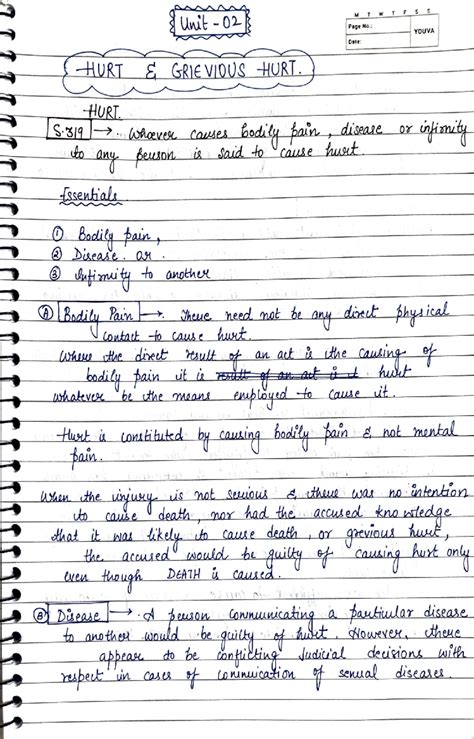 Unit - 02
M T W T F S S
Page No.:
Date:
YOUVA
HURT & GRIEVIOUS HURT.
HURT.
S.319 → Whoever causes bodily pain, disease or infirmity
to any person is said to cause hurt.
Essentials
① Bodily pain,
② Disease or
③ Infirmity to another
Ⓐ Bodily Pain → There need not be any direct physical
contact to cause hurt.
Where the direct result of an act is the causing of
bodily pain it is result of an act is t hurt
whatever be the means employed to cause it.
Hurt is constituted by causing bodily pain & not mental
pain.
When the injury is not serious & there was no intention
to cause death, nor had the accused knowledge
that it was likely to cause death, or grevious hurt,
the accused would be guilty of causing hurt only
even though DEATH is caused.
Ⓑ Disease → A person communicating a particular disease
to another would be guilty of hurt. However, there
appear to be conflicting Judicial decisions with
respect in cases of communication of sexual diseases.